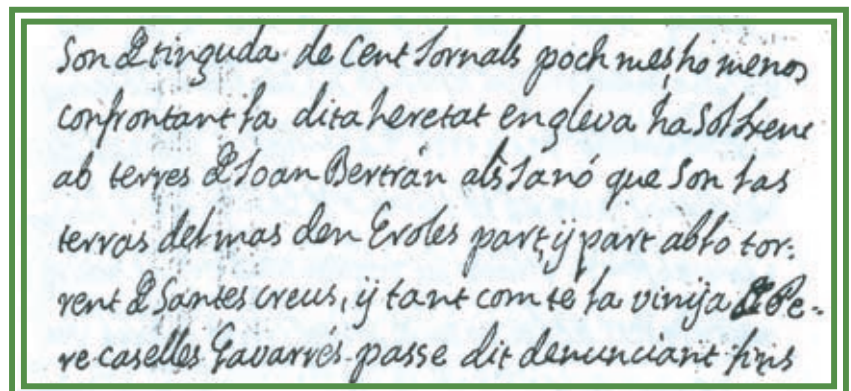 son de tinguda de Cent Jornals poch mes, ho menos
confrontant la dita heretat engleva ha sol ixent
ab terres de Joan Bertrán als Janó que son las
terras del mas den Eroles part, ÿ part ab lo tor:
rent de Santes creus, ÿ tant com te la vinÿa de Pe:
re caselles Gavarrés passe dit denunciant fins